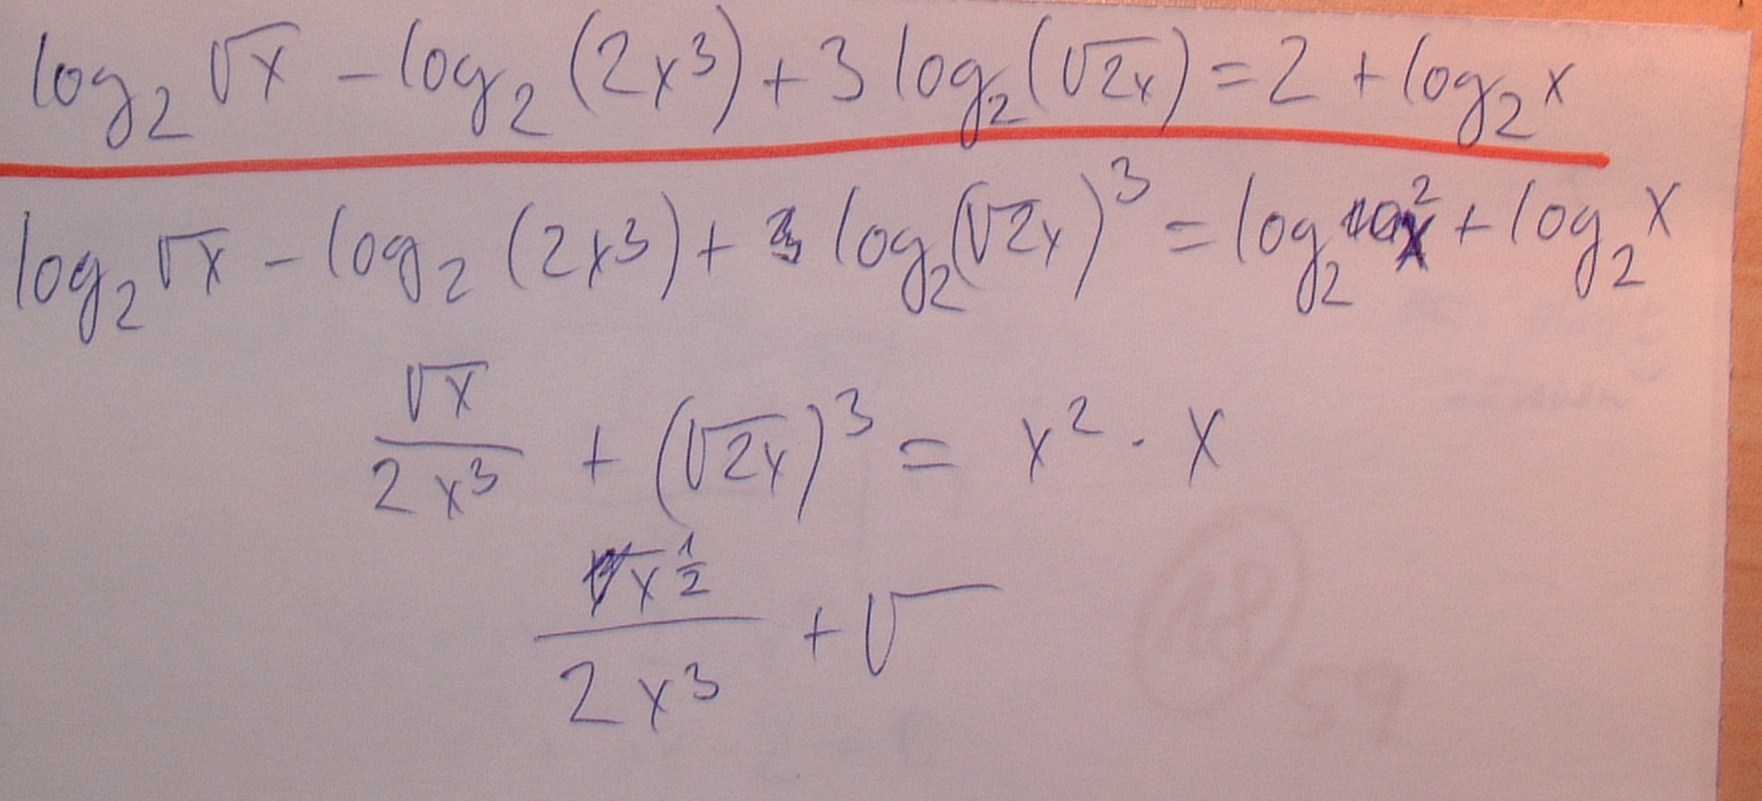 log₂ √x − log₂ (2x³) + 3 log₂ (√2x) = 2 + log₂ x
log₂ √x − log₂ (2x³) + log₂ (√2x)³ = log₂ x² + log₂ x
√x / 2x³ + (√2x)³ = x² · x
x^½ / 2x³ + √